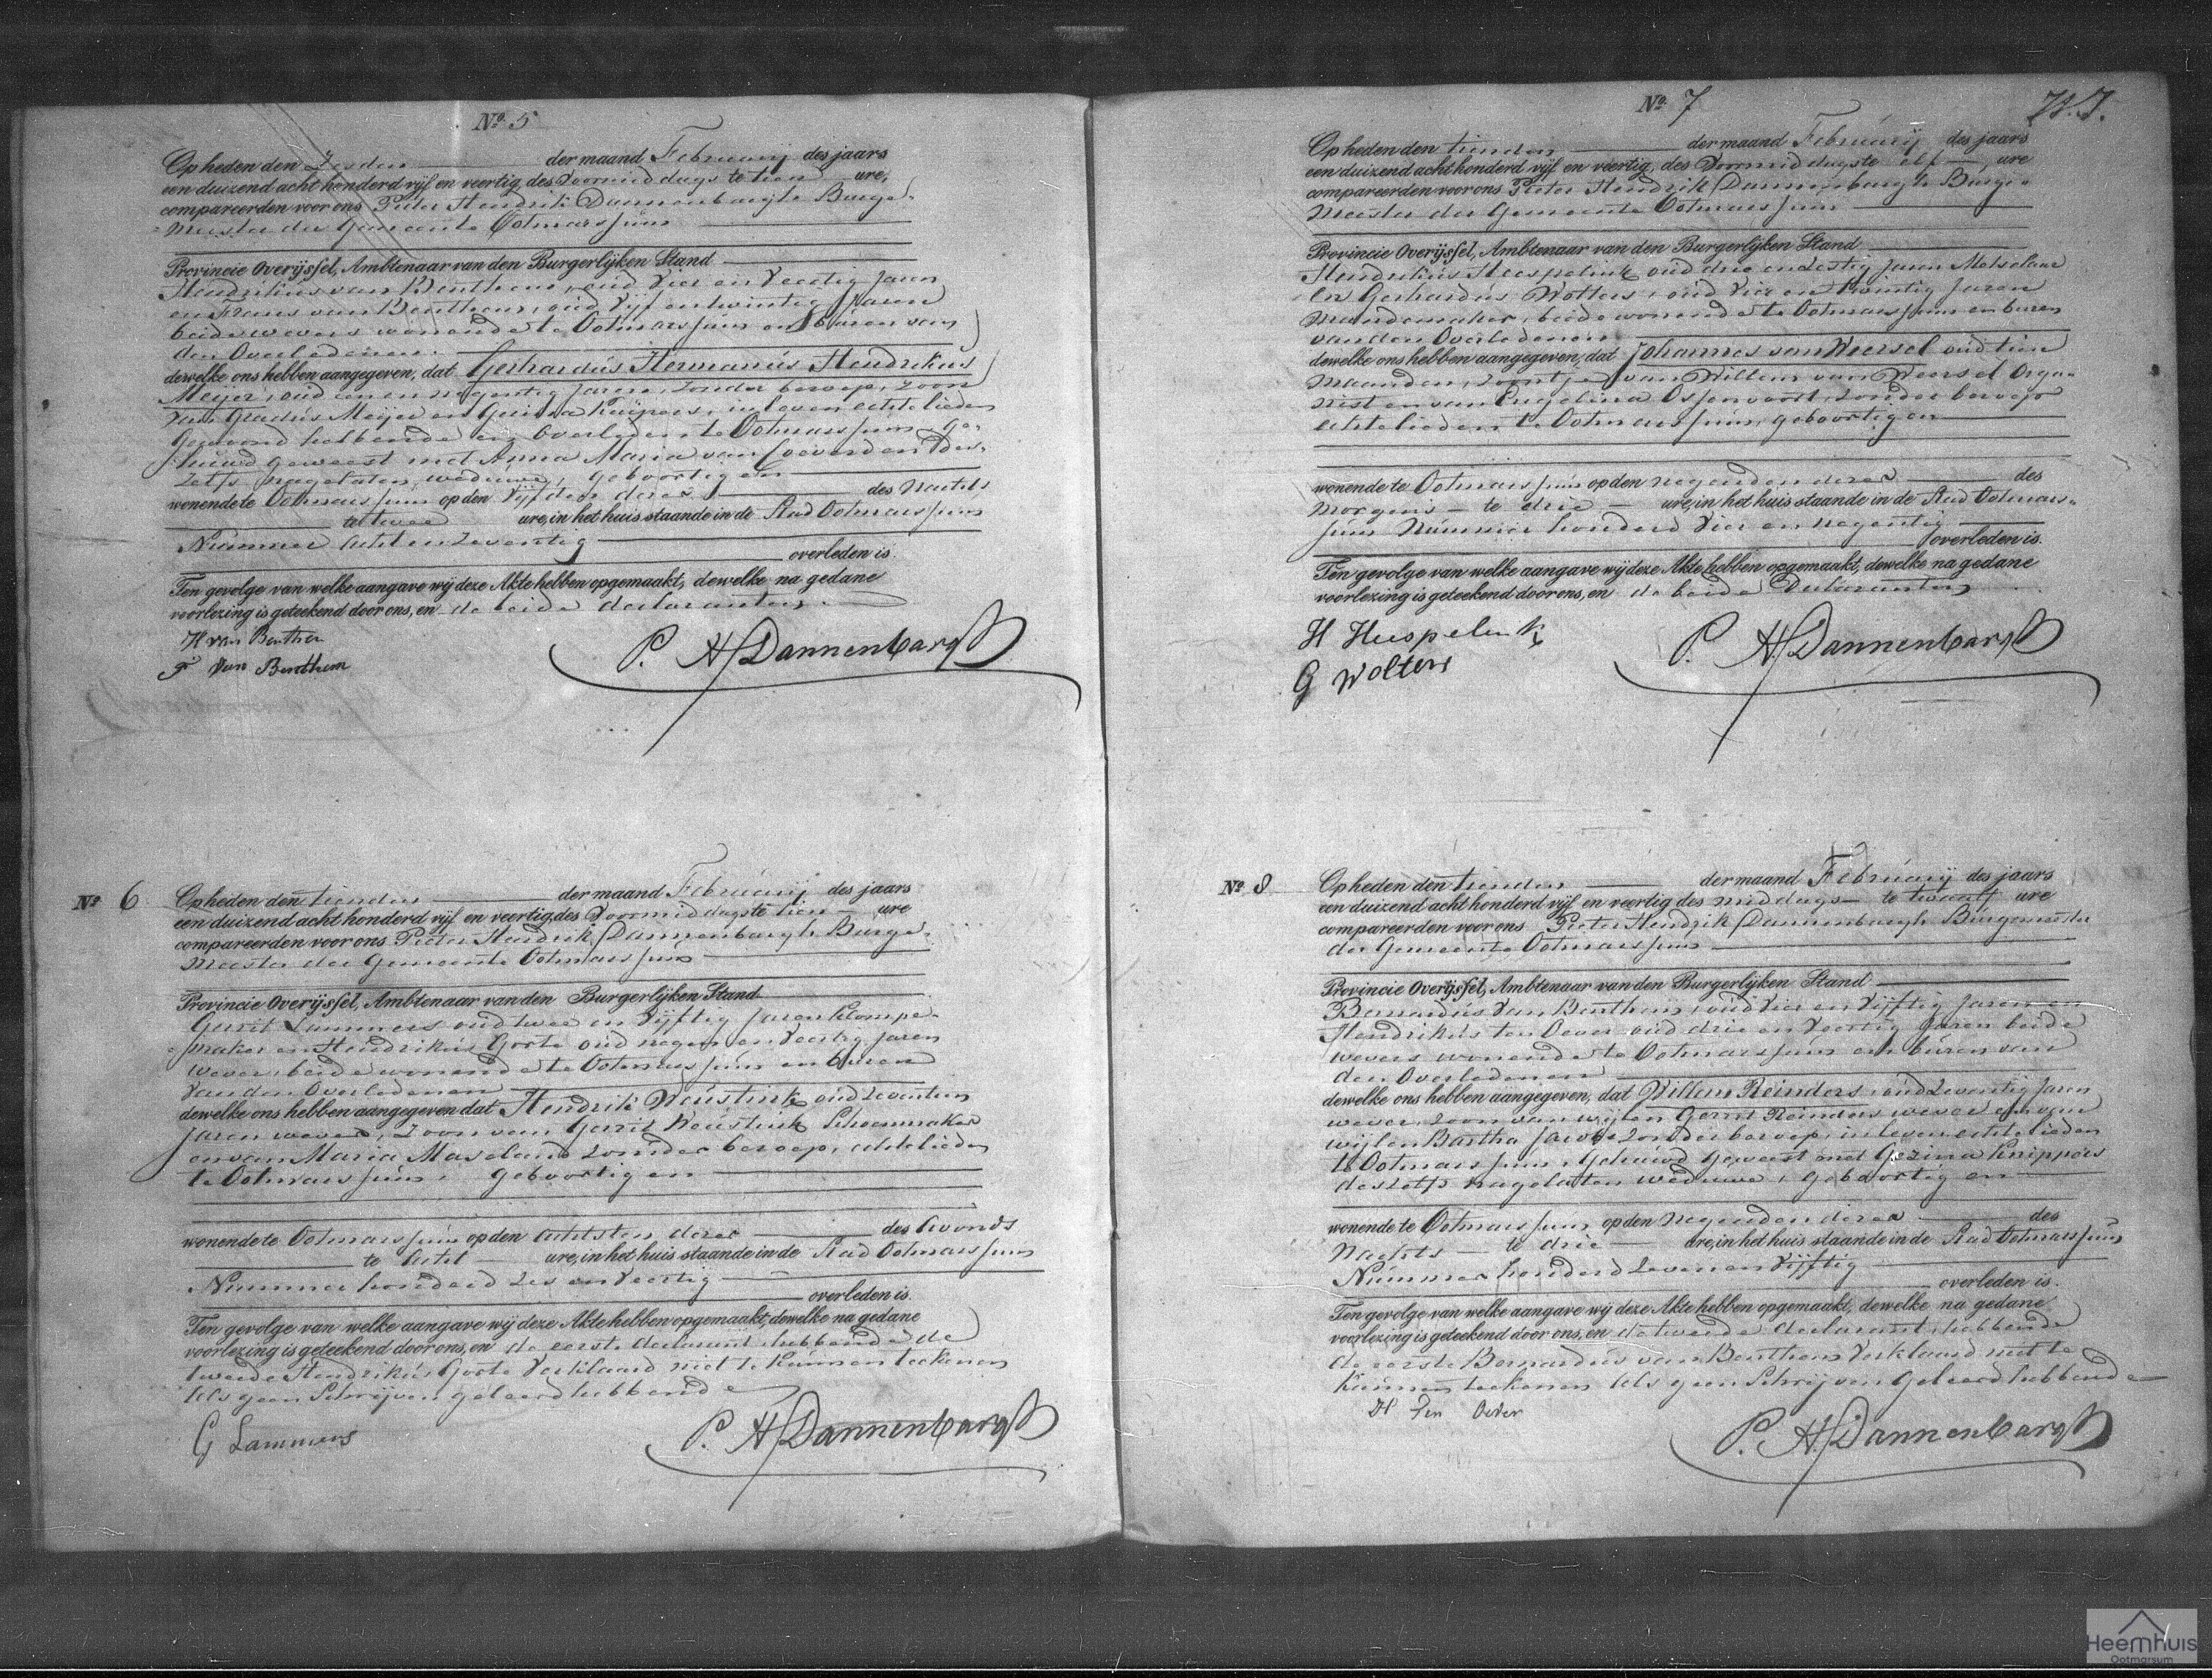 No. 5
Op heden den Zesden der maand Februarij des jaars
een duizend acht honderd vijf en veertig, des Voormiddags te tien ure,
compareerden voor ons Pieter Hendrik Dannenbargh Burge-
meester der Gemeente Ootmarssum
Provincie Overijssel, Ambtenaar van den Burgerlijken Stand
Hendrikus van Benthem, oud Vier en Veertig Jaren
en Frans van Benthem, oud Vijf en twintig Jaren
beide wevers wonende te Ootmarssum en buren van
den Overledenen
dewelke ons hebben aangegeven, dat Gerhardus Hermanus Hendrikus
Meyer, oud een en negentig Jaren, zonder beroep, zoon
van Gradus Meijer en Geisina Kuipers, in leven echtelieden
gewoond hebbende en Overleden te Ootmarssum, ge-
huwd geweest met Anna Maria van Coeverden des-
zelfs nagelaten weduwe, geboortig en
wonende te Ootmarssum op den Vijfden dezer des Nachts
te twee ure, in het huis staande in de Stad Ootmarssum
Nummer Acht en Zeventig
overleden is.
Ten gevolge van welke aangave wij deze Akte hebben opgemaakt, dewelke na gedane
voorlezing is geteekend door ons, en de beide declaranten
H van Benthem
F Van Benthem
P. H. Dannenbargh
No. 6
Op heden den tienden der maand Februarij des jaars
een duizend acht honderd vijf en veertig, des Voormiddags te tien ure
compareerden voor ons Pieter Hendrik Dannenbargh Burge-
meester der Gemeente Ootmarssum
Provincie Overijssel, Ambtenaar van den Burgerlijken Stand
Gerrit Lammers oud twee en Vijftig Jaren Klompe-
maker en Hendrikus Grote oud negen en Veertig Jaren
wever, beide wonende te Ootmarssum en buren
van den Overledenen
dewelke ons hebben aangegeven dat Hendrik Neustink oud Zeventien
Jaren wever, zoon van Gerrit Neustink Schoenmaker
en van Maria Maseland zonder beroep, echtelieden
te Ootmarssum, geboortig en
wonende te Ootmarssum op den achtsten dezer des Avonds
te Acht ure, in het huis staande in de Stad Ootmarssum
Nummer honderd Zes en Veertig
overleden is.
Ten gevolge van welke aangave wij deze Akte hebben opgemaakt, dewelke na gedane
voorlezing is geteekend door ons, en de eerste declarant hebbende de
tweede Hendrikus Grote Verklaard niet te kunnen teekenen
Als geen Schrijven geleerd hebbende
G Lammers
P. H. Dannenbargh
No. 7
Op heden den tienden der maand Februarij des jaars
een duizend acht honderd vijf en veertig, des Voormiddags te elf ure
compareerden voor ons Pieter Hendrik Dannenbargh Burge-
meester der Gemeente Ootmarssum
Provincie Overijssel, Ambtenaar van den Burgerlijken Stand
Hendrikus Heespelink oud drie en zestig Jaren Metselaar
en Gerhardus Wolters, oud Vier en twintig Jaren
Mandemaker, beide wonende te Ootmarssum en buren
van den Overledenen
dewelke ons hebben aangegeven, dat Johannes van Weersel oud tien
Maanden, zoontje van Willem van Weersel Orga-
nist en van Engelina Ossenvoort zonder beroep
echtelieden te Ootmarssum, geboortig en
wonende te Ootmarssum op den negenden dezer des
Morgens te drie ure, in het huis staande in de Stad Ootmars-
sum Nummer honderd Vier en negentig
overleden is.
Ten gevolge van welke aangave wij deze Akte hebben opgemaakt, dewelke na gedane
voorlezing is geteekend door ons, en de beide Declaranten
H Heespelink
G Wolters
P. H. Dannenbargh
No. 8
Op heden den tienden der maand Februarij des jaars
een duizend acht honderd vijf en veertig des middags te twaalf ure
compareerden voor ons Pieter Hendrik Dannenbargh Burgemeester
der Gemeente Ootmarssum
Provincie Overijssel, Ambtenaar van den Burgerlijken Stand
Bernardus Van Benthem, oud Vier en Vijftig Jaren en
Hendrikus ten Oever oud drie en Veertig Jaren beide
wevers wonende te Ootmarssum en buren van
den Overledenen
dewelke ons hebben aangegeven, dat Willem Reinders, oud Zeventig Jaren
wever, zoon van wijlen Gerrit Reinders wever en van
wijlen Bartha Jacobs zonder beroep, in leven echtelieden
te Ootmarssum, gehuwd geweest met Gezina Knippers
deszelfs nagelaten weduwe, geboortig en
wonende te Ootmarssum op den negenden dezer des
Nachts te drie ure, in het huis staande in de Stad Ootmarssum
Nummer honderd Zeven en Vijftig
overleden is.
Ten gevolge van welke aangave wij deze Akte hebben opgemaakt, dewelke na gedane
voorlezing is geteekend door ons, en de tweede declarant, hebbende
de eerste Bernardus van Benthem Verklaard niet te
kunnen teekenen Als geen Schrijven geleerd hebbende
H Ten Oever
P. H. Dannenbargh
Heemhuis
Ootmarsum